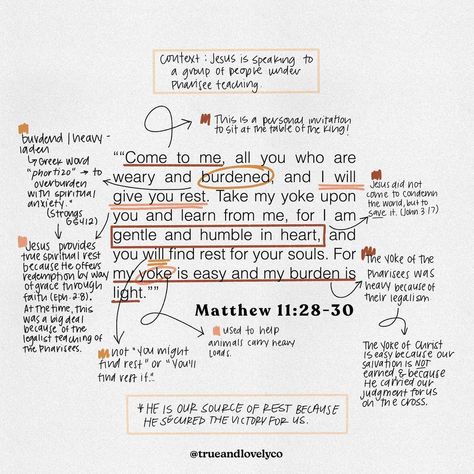 Context: Jesus is speaking to
a group of people under
Pharisee teaching.
This is a personal invitation
to sit at the table of the King!
burdend / heavy-
laden
↳ Greek word
"phortizo" → to
overburden
with spiritual
anxiety."
(Strongs
G5412)
Jesus provides
true spiritual rest
because he offers
redemption by way
of grace through
faith (Eph. 2:8).
At the time, this
was a big deal
because of the
legalist teaching of
the Pharisees.
““Come to me, all you who are
weary and burdened, and I will
give you rest. Take my yoke upon
you and learn from me, for I am
gentle and humble in heart, and
you will find rest for your souls. For
my yoke is easy and my burden is
light.””
Matthew 11:28-30
Jesus did not
come to condemn
the world, but to
save it. (John 3:17)
The yoke of the
Pharisees was
heavy because of
their legalism
The yoke of Christ
is easy because our
salvation is NOT
earned, & because
He carried our
judgment for us
on the cross.
not "you might
find rest" or "you'll
find rest if."
used to help
animals carry heavy
loads.
* He is our source of rest because
He secured the victory for us.
@trueandlovelyco